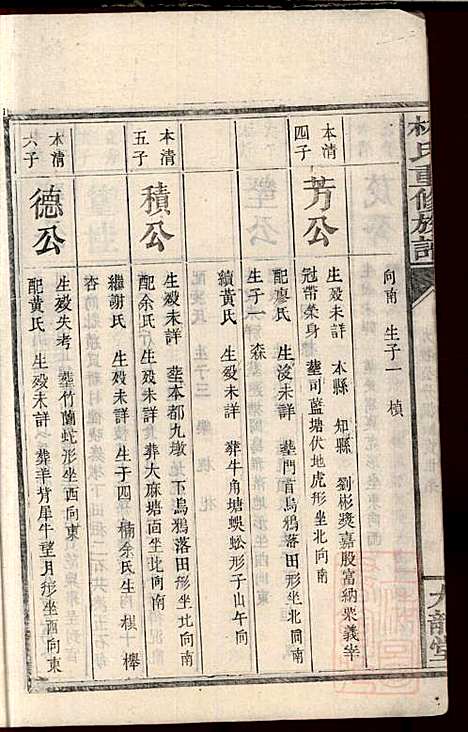 林氏重修族譜
九龍堂
向南 生子一 楨
本清
四子
芳公
生殁未詳 本縣 知縣 劉彬獎嘉殷富納粟義宰
冠帶榮身 塟司藍塘伏地虎形坐北向南
配廖氏 生殁未詳 塟門首烏鴉落田形坐北向南
生子一 森
續黃氏 生殁未詳 葬牛角塘蜈蚣形子山午向
本清
五子
積公
生殁未詳 塟本都九墩 下烏鴉落田形坐北向南
配余氏 生殁未詳 葬大麻塘面坐北向南
繼謝氏 生殁未詳 生子四 楠余氏生 棋 櫸
杏
本清
六子
德公
生殁失考 塟竹蘭蛇形坐西向東
配黃氏 生殁未詳 葬羊背犀牛望月形坐西向東